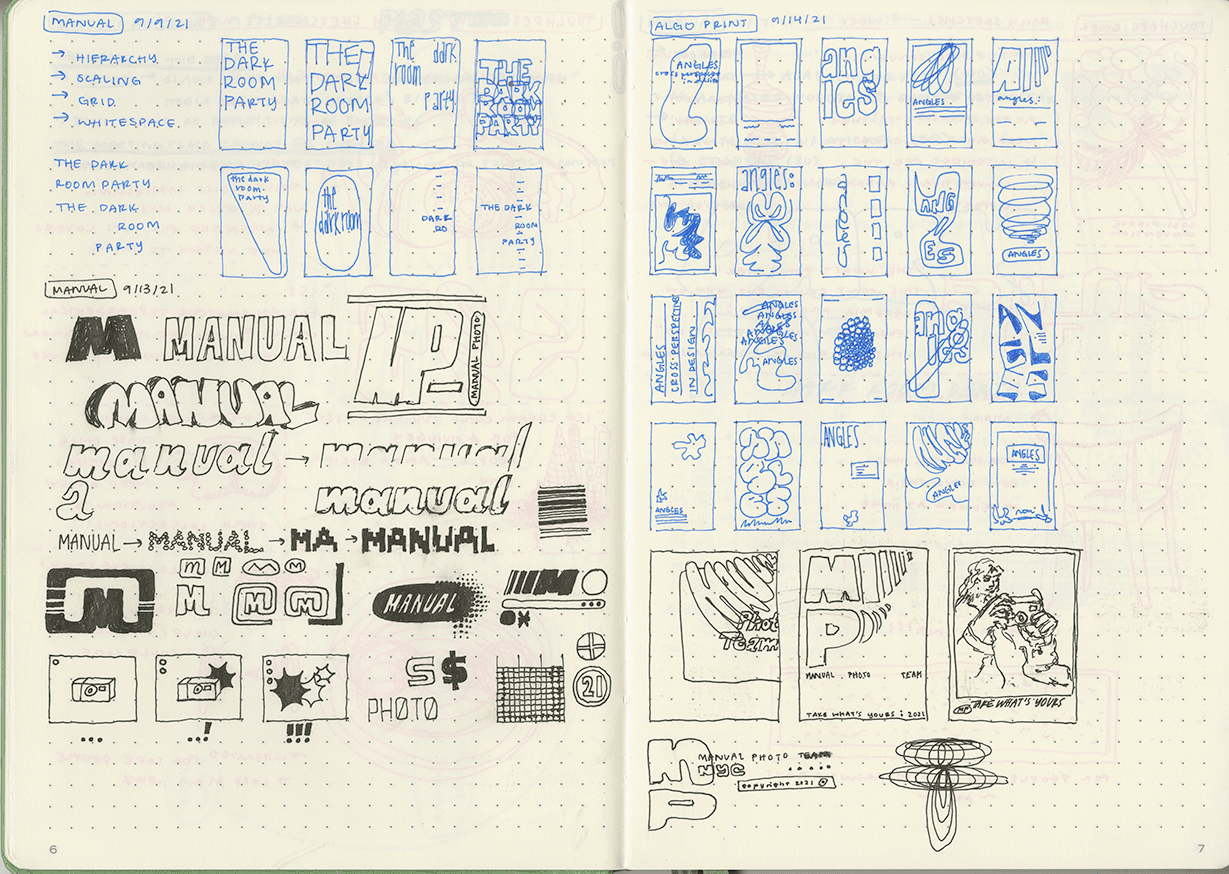 MANUAL 9/9/21
→ HIERARCHY
→ SCALING
→ GRID
→ WHITESPACE
THE DARK
ROOM PARTY
THE DARK
ROOM
PARTY
THE
DARK
ROOM
PARTY
THE
DARK
ROOM
PARTY
The dark
room
party
THE
DARK
ROOM
PARTY
the dark
room
party
the
darkroom
DARK
RO
THE DARK
ROOM
PARTY
MANUAL 9/13/21
M MANUAL
MP
MANUAL PHOTO
MANUAL
manual → manual
a
manual
MANUAL → MANUAL → MA → MANUAL
M M M M
M
M @ @
MANUAL
M
...
..!
!!!
S $
PHOTO
21
6
ALGO PRINT 9/14/21
ANGLES
cross perspective
in design
angles
ANGLES
angles:
angles:
ANGLES
ANGLES
ANGLES
CROSS-PERSPECTIVE
IN DESIGN
ANGLES
ANGLES
ANGLES
ANGLES
ANGLES
ANGLES
angles
ANGLES
ANGLES
ANGLES
ANGLES
PHOTO
TEAM
M
P
MANUAL PHOTO TEAM
TAKE WHAT'S YOURS : 2021
MP TAKE WHAT'S YOURS
M
P
MANUAL PHOTO TEAM
NYC
copyright 2021 ©
7